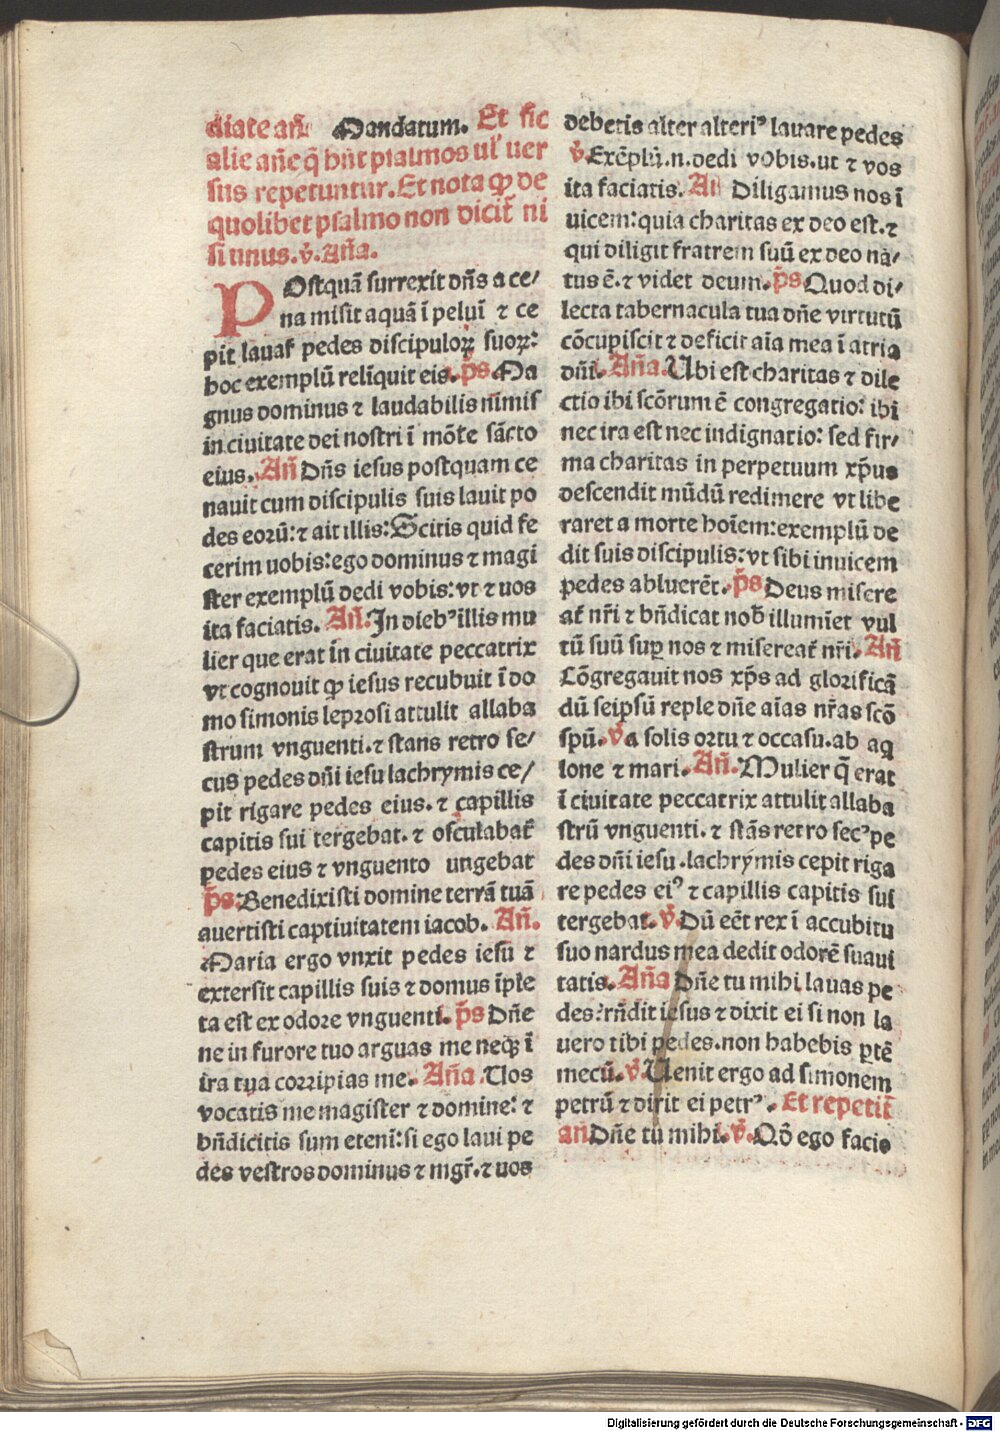 diate añ Mandatum. Et sic
alie añe q̄ hñt psalmos ul' uer
sus repetuntur. Et nota ꝙ de
quolibet psalmo non dicit̄ ni
si unus. v̄. Aña.
POstquã surrexit dñs a ce/
na misit aquã ī peluī ⁊ ce
pit lauar̄ pedes discipuloꝝ suoꝝ:
hoc exemplũ relīquit eis. p̄s Ma
gnus dominus ⁊ laudabilis nimis
in ciuitate dei nostri ī mōte sãcto
eius. Añ Dñs iesus postquam ce
nauit cum discipulis suis lauit pe
des eorũ: ⁊ ait illis: Scitis quid fe
cerim uobis: ego dominus ⁊ magi
ster exemplũ dedi vobis: vt ⁊ uos
ita faciatis. Añ. In dieb⁹ illis mu
lier que erat in ciuitate peccatrix
vt cognouit ꝙ iesus recubuit ī do
mo simonis leprosi attulit allaba
strum vnguenti. ⁊ stans retro se/
cus pedes dñi iesu lachrymis ce/
pit rigare pedes eius. ⁊ capillis
capitis sui tergebat. ⁊ osculabat̄
pedes eius ⁊ vnguento ungebat
p̄s: Benedixisti domine terrã tuã
auertisti captiuitatem iacob. Añ.
Maria ergo vnxit pedes iesu ⁊
extersit capillis suis ⁊ domus īple
ta est ex odore vnguenti. p̄s Dñe
ne in furore tuo arguas me neqꝫ ī
ira tua corripias me. Aña. Uos
vocatis me magister ⁊ domine: ⁊
bñdicitis sum etenī: si ego laui pe
des vestros dominus ⁊ mgr̄. ⁊ uos
debetis alter alteri⁹ lauare pedes
v̄. Exēplũ. n. dedi vobis. ut ⁊ vos
ita faciatis. Añ Diligamus nos ī
uicem: quia charitas ex deo est. ⁊
qui diligit fratrem suũ ex deo na/
tus ē. ⁊ videt deum. p̄s Quod di/
lecta tabernacula tua dñe virtutũ
cōcupiscit ⁊ deficit aīa mea ī atria
dñi. Aña. Ubi est charitas ⁊ dile
ctio ibi scōrum ē congregatio: ibi
nec ira est nec indignatio: sed fir/
ma charitas in perpetuum xp̄us
descendit mũdũ redimere vt libe
raret a morte hoīem: exemplũ de
dit suis discipulis: vt sibi inuicem
pedes abluerēt. p̄s Deus misere
at̄ nr̄i ⁊ bñdicat nob̄ illumīet vul
tũ suũ suꝑ nos ⁊ misereat̄ nr̄i. Añ
Cōgregauit nos xp̄s ad glorificã
dũ seipsũ reple dñe aīas nr̄as scō
spũ. v̄ A solis ortu ⁊ occasu. ab aq
lone ⁊ mari. Añ. Mulier q̄ erat
ī ciuitate peccatrix attulit allaba
strũ vnguenti. ⁊ stãs retro sec⁹ pe
des dñi iesu. lachrymis cepit riga
re pedes ei⁹ ⁊ capillis capitis sui
tergebat. v̄. Dũ eēt rex ī accubitu
suo nardus mea dedit odorē suaui
tatis. Aña Dñe tu mihi lauas pe
des? rñdit iesus ⁊ dixit ei si non la
uero tibi pedes. non habebis ꝑtē
mecũ. v̄. Uenit ergo ad simonem
petrũ ⁊ dixit ei petr⁹. Et repetit̄
añ Dñe tu mihi. v̄. Qō ego facio
Digitalisierung gefördert durch die Deutsche Forschungsgemeinschaft - DFG